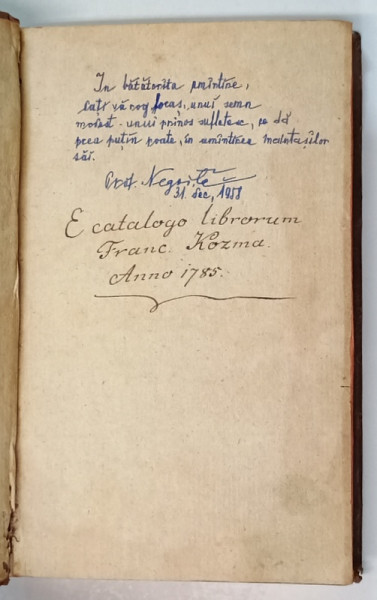 In bătătorita amintire,
lați vă rog focas, unui semn
modest - unui prinos sufletesc, ce dă
prea puțin poate, în amintirea înaintașilor
săi.
Prof. Negoiță
31 Dec, 1958
E catalogo librorum
Franc. Kozma.
Anno 1785.